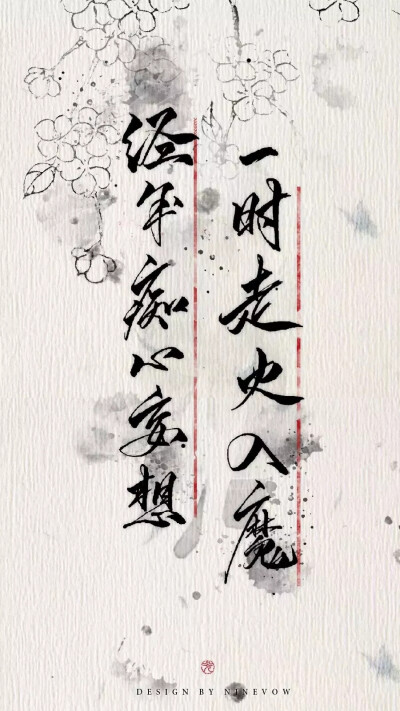 一时走火入魔
经年痴心妄想
DESIGN BY NINEVOW